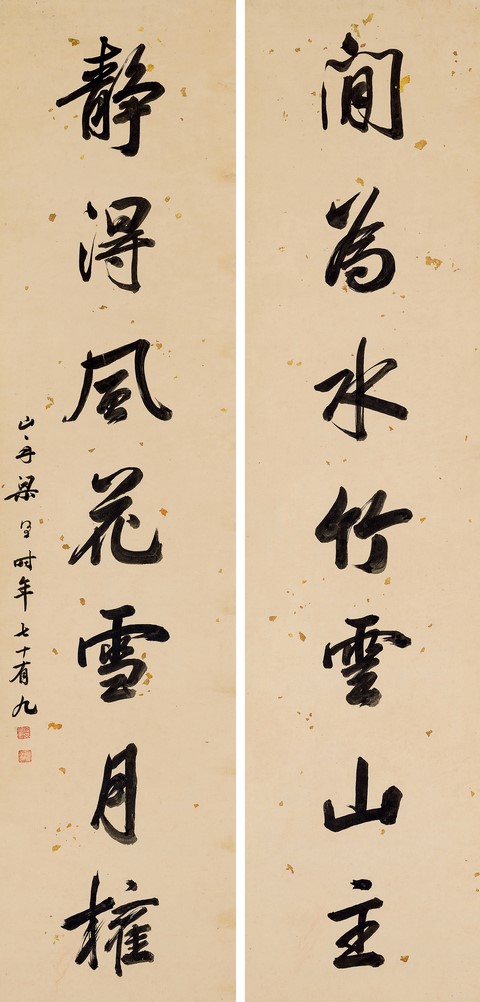 閒為水竹雲山主
靜得風花雪月權
山舟梁同書時年七十有九